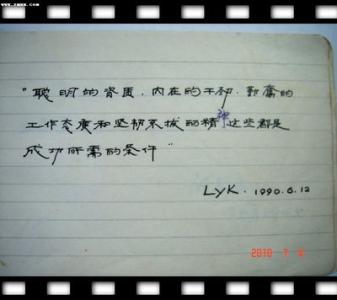 "聪明的资质，内在的干劲，勤奋的
工作态度和坚韧不拔的精神这些都是
成功所需的条件"
LYK. 1990.6.12